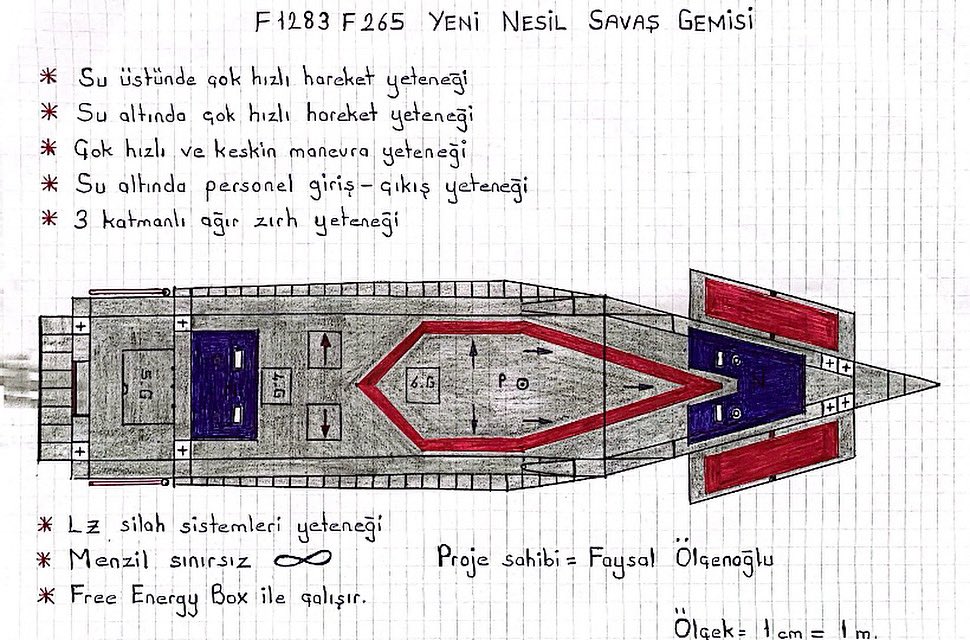 F1283 F265 YENİ NESİL SAVAŞ GEMİSİ
* Su üstünde çok hızlı hareket yeteneği
* Su altında çok hızlı hareket yeteneği
* Çok hızlı ve keskin manevra yeteneği
* Su altında personel giriş-çıkış yeteneği
* 3 katmanlı ağır zırh yeteneği
5.G
7.G
6.G
P.
* Lz silah sistemleri yeteneği
* Menzil sınırsız ∞
* Free Energy Box ile çalışır.
Proje sahibi = Faysal Ölçenoğlu
Ölçek= 1 cm = 1 m.